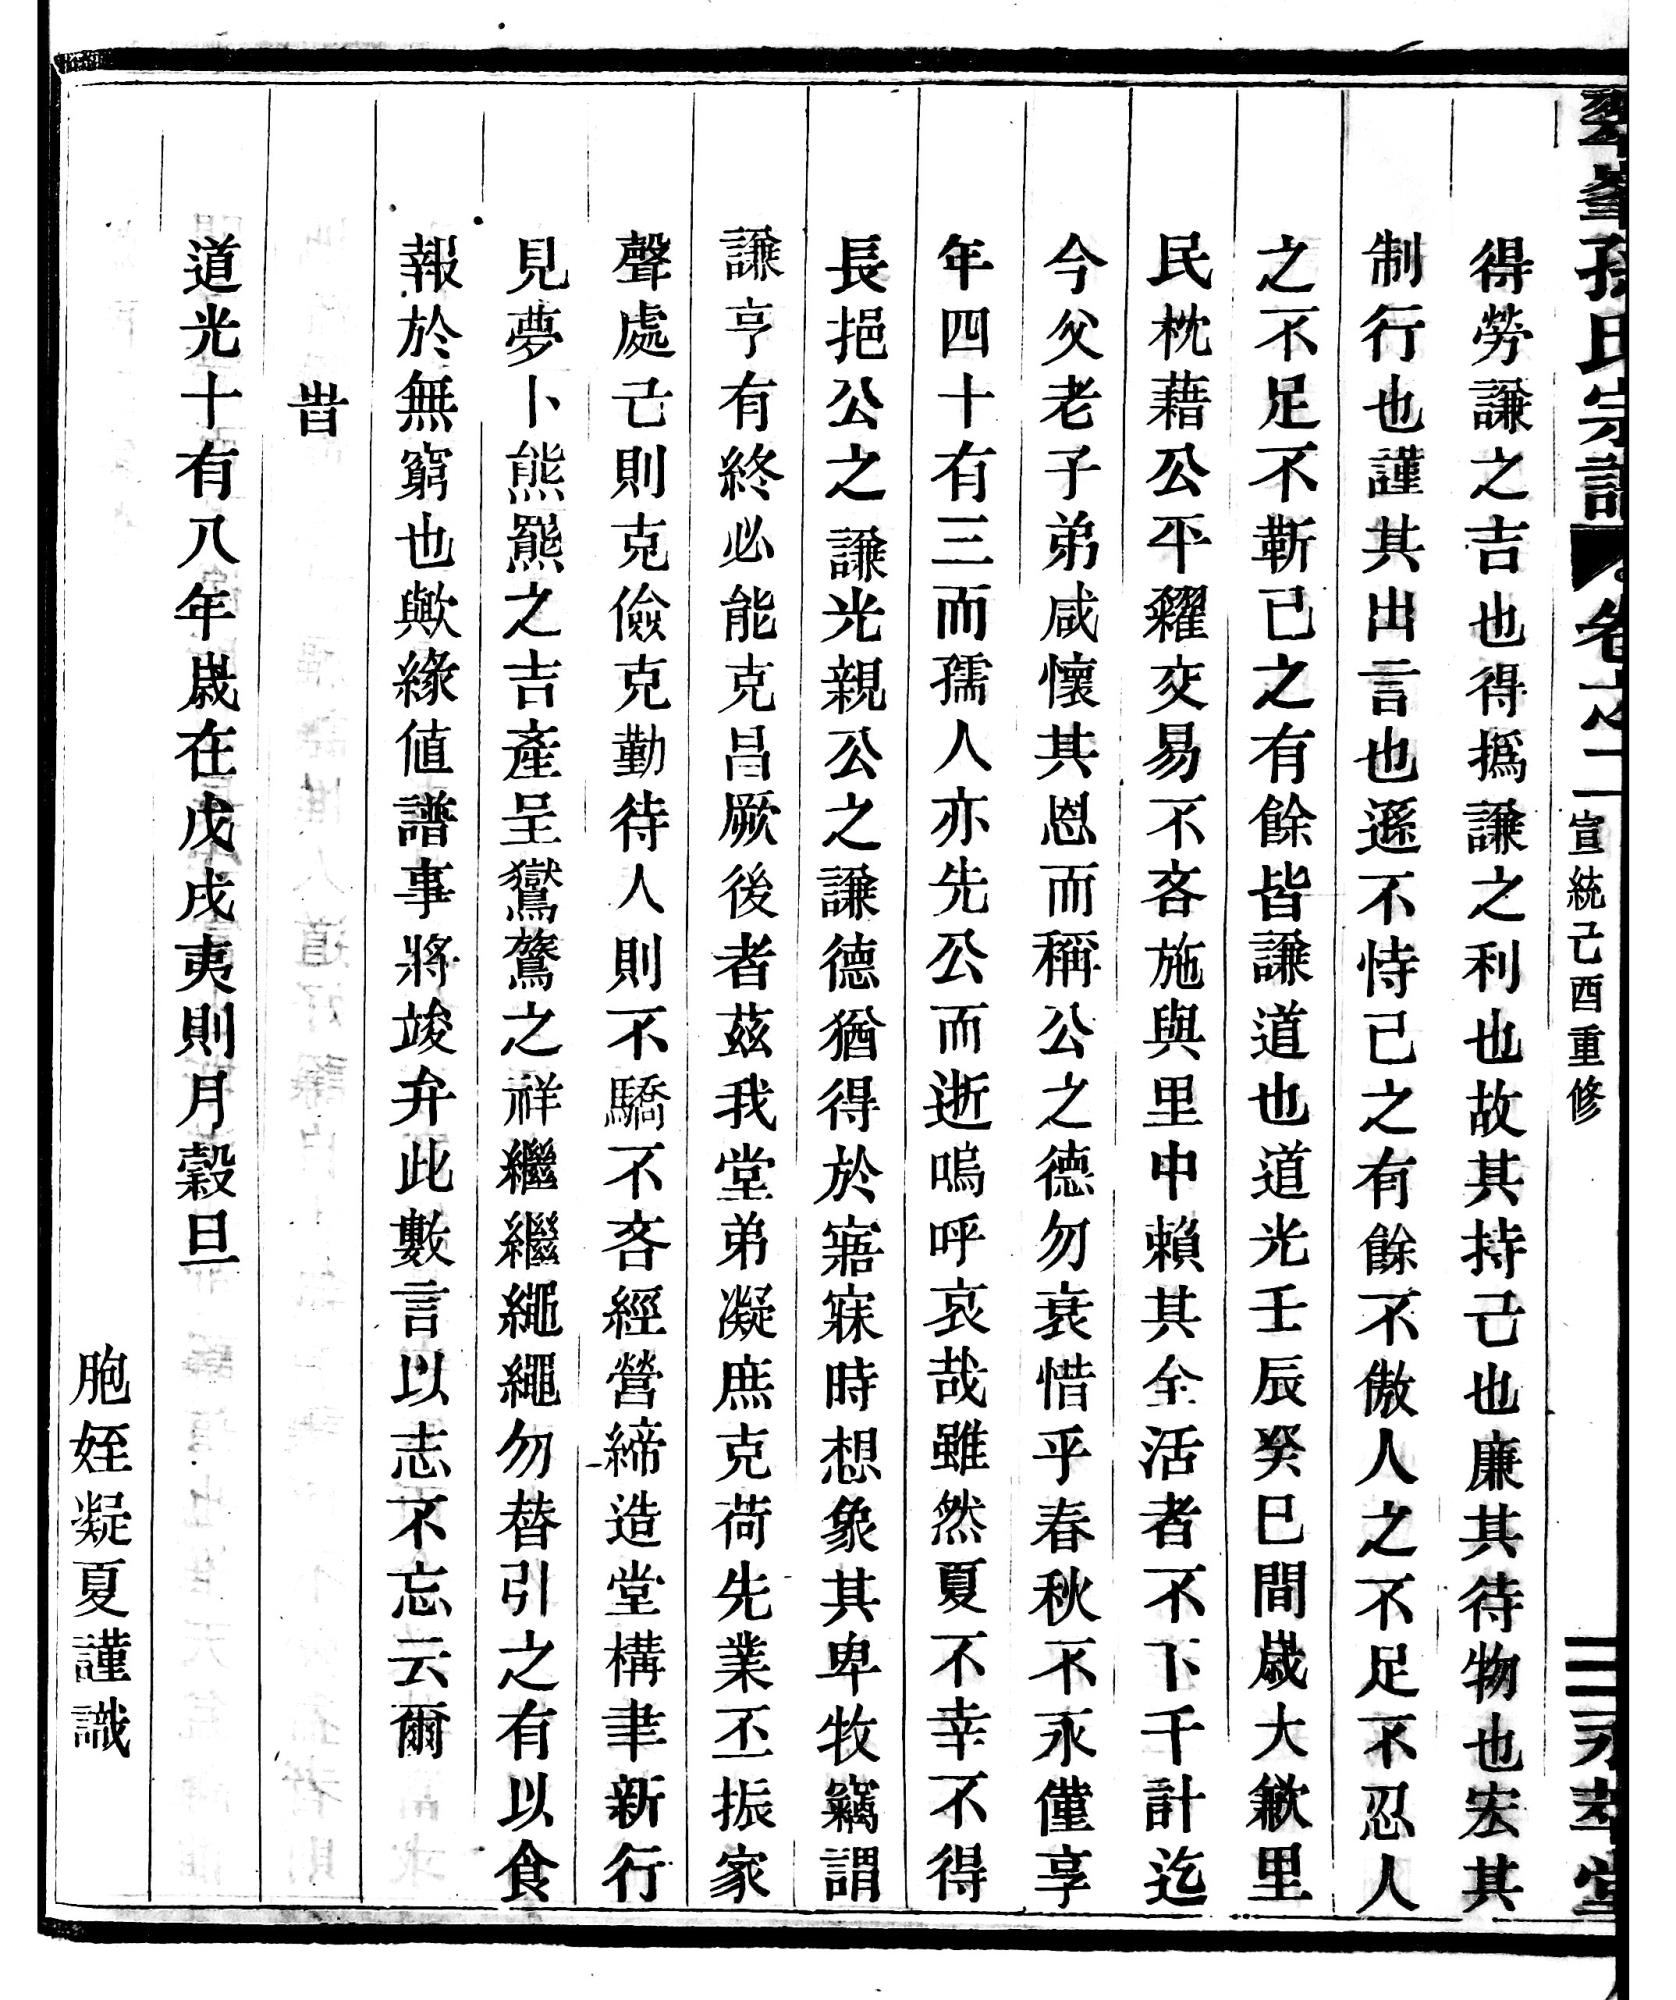 孫氏宗譜 卷之二 宣統己酉重修 永萃堂
得勞謙之吉也得撝謙之利也故其持己也廉其待物也宏其
制行也謹其出言也遜不恃己之有餘不傲人之不足不忍人
之不足不靳己之有餘皆謙道也道光壬辰癸巳間歲大歉里
民枕藉公平糶交易不吝施與里中賴其全活者不下千計迄
今父老子弟咸懷其恩而稱公之德勿衰惜乎春秋不永僅享
年四十有三而孺人亦先公而逝嗚呼哀哉雖然夏不幸不得
長挹公之謙光親公之謙德猶得於寤寐時想象其卑牧竊謂
謙亨有終必能克昌厥後者茲我堂弟凝庶克荷先業丕振家
聲處己則克儉克勤待人則不驕不吝經營締造堂構聿新行
見夢卜熊羆之吉產呈鸑鷟之祥繼繼繩繩勿替引之有以食
報於無窮也歟緣値譜事將竣弁此數言以志不忘云爾
旹
道光十有八年歲在戊戌夷則月穀旦
胞姪凝夏謹識